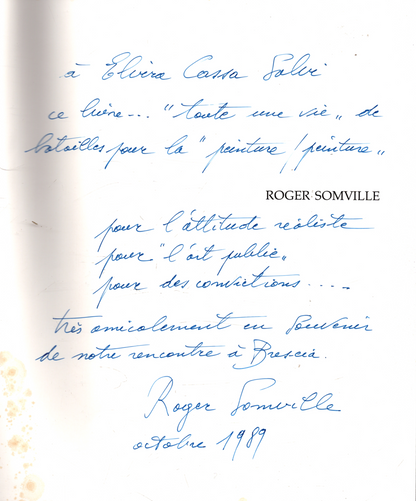 à Elvira Cassa Salvi
ce livre... "toute une vie" de
batailles pour la "peinture / peinture"
ROGER SOMVILLE
pour l'attitude réaliste
pour "l'art public"
pour des convictions.....
très amicalement en souvenir
de notre rencontre à Brescia.
Roger Somville
octobre 1989